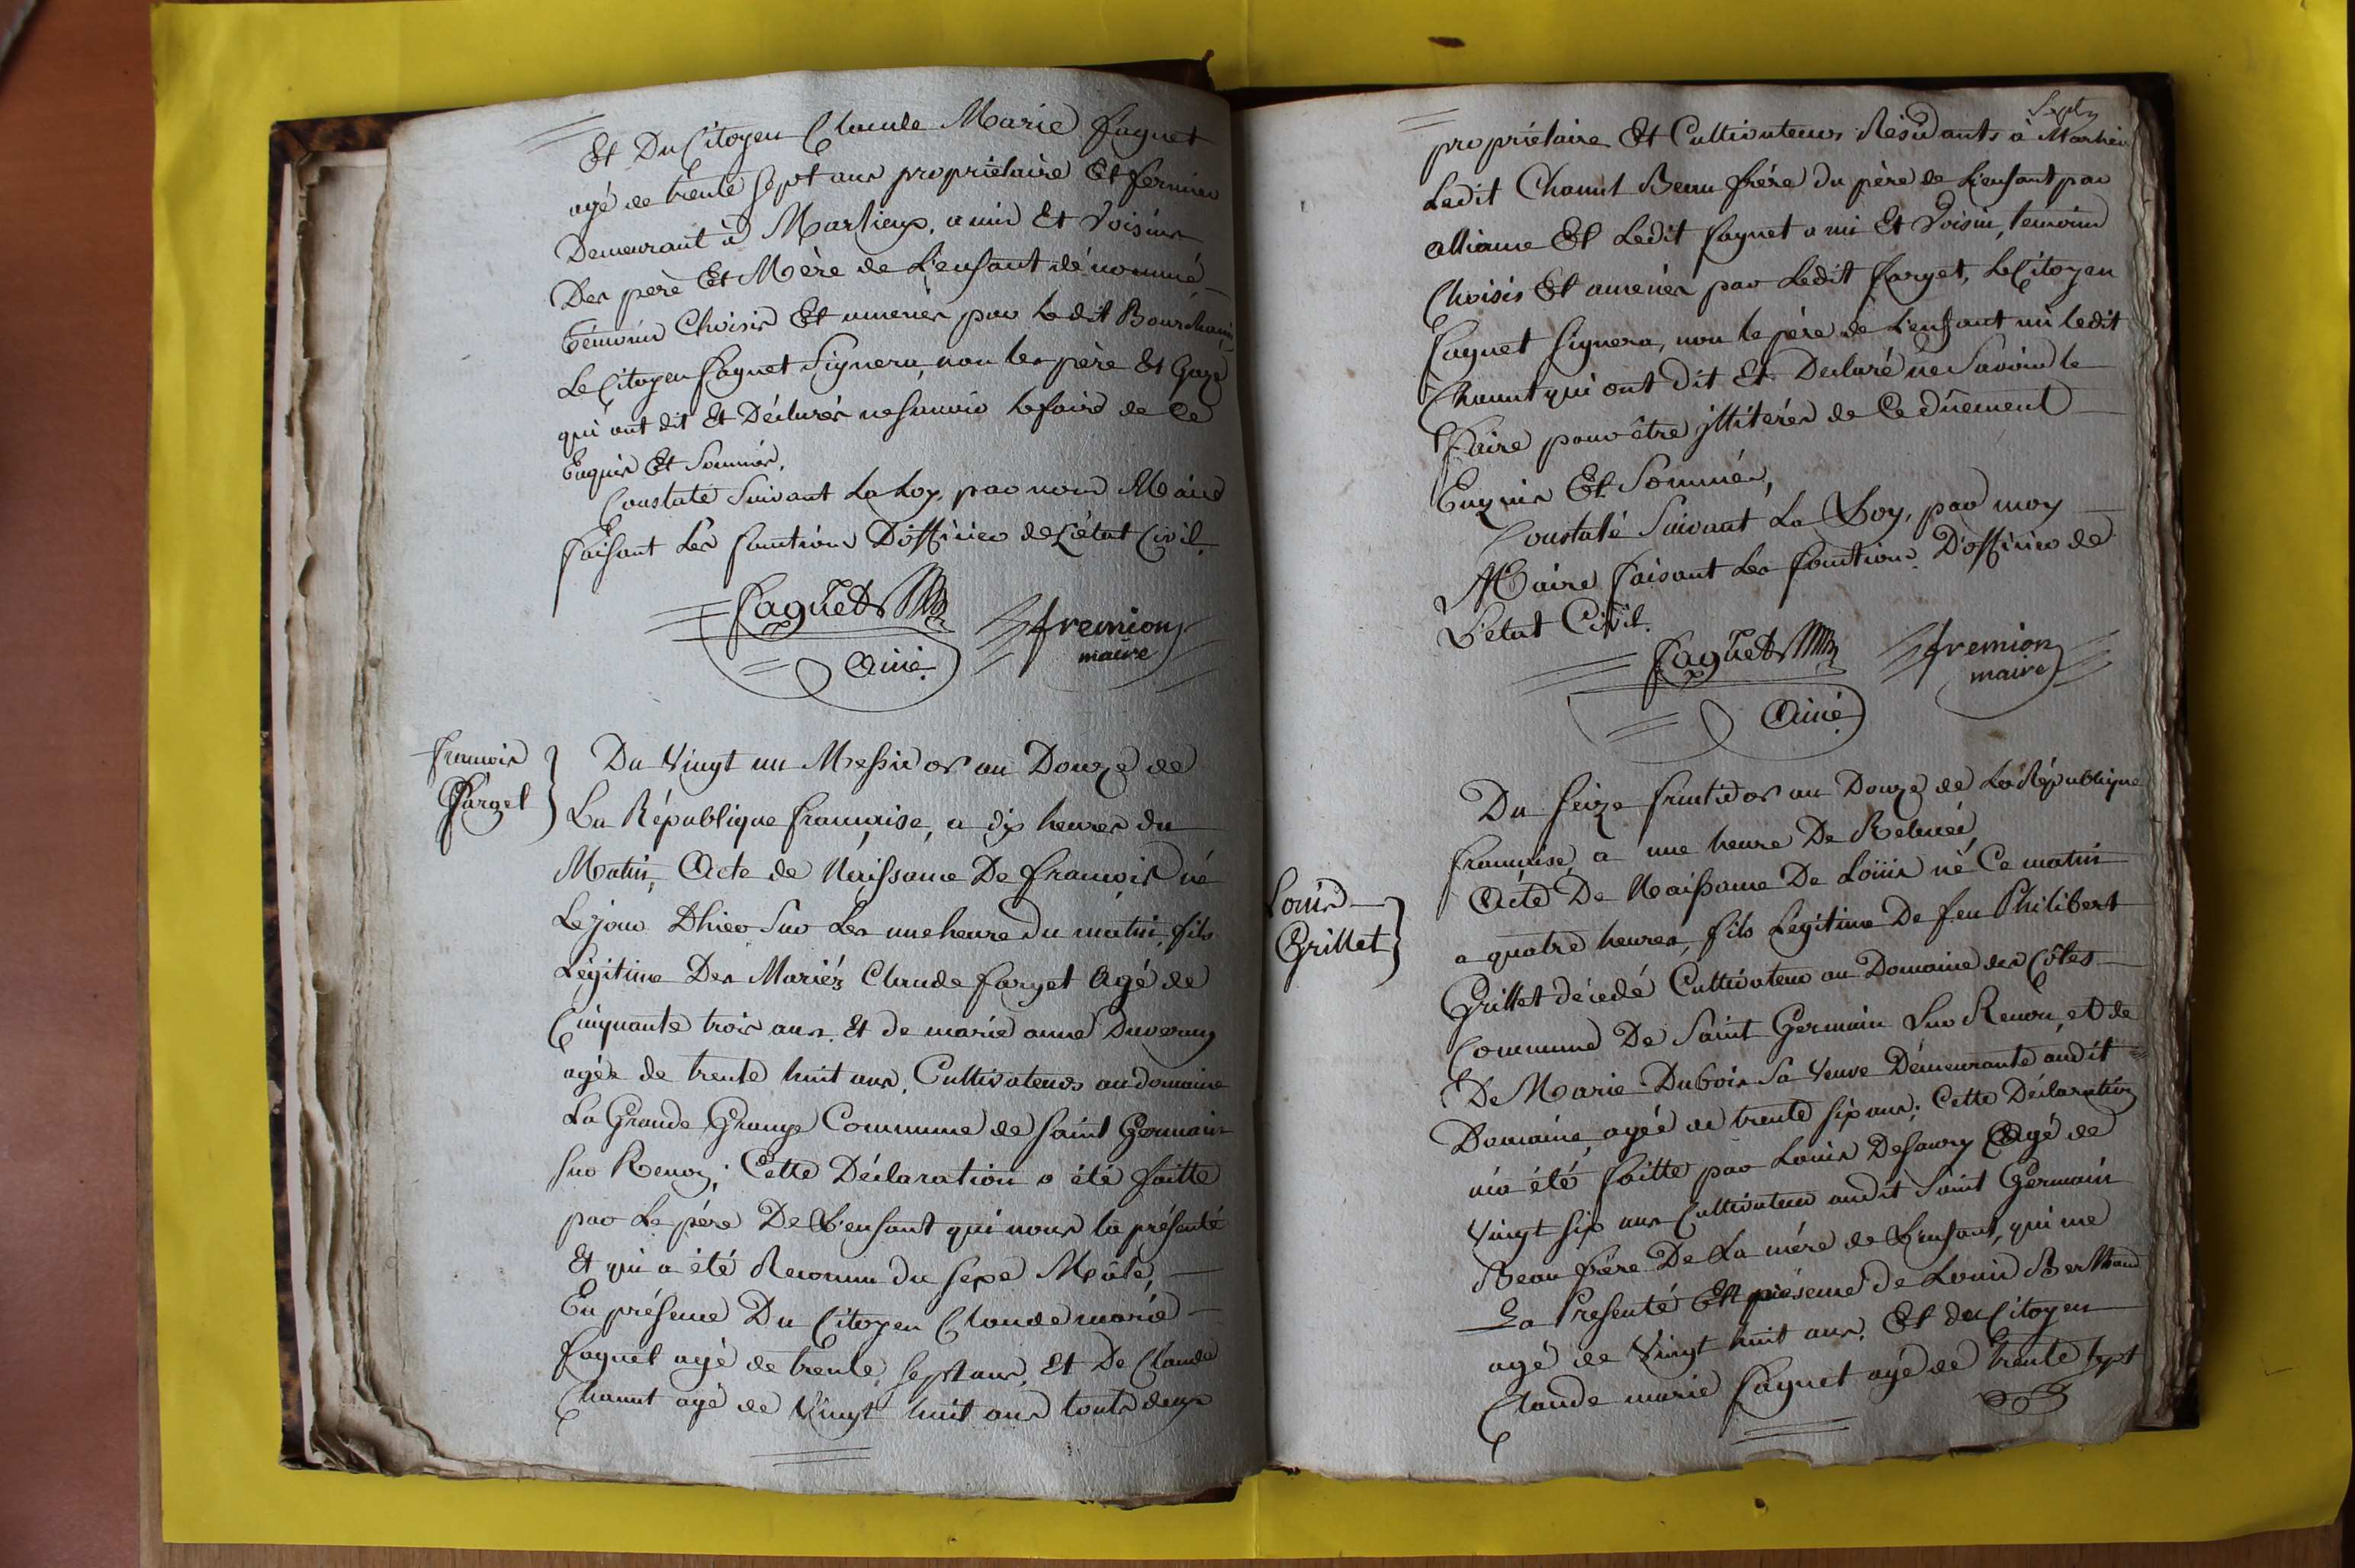 Et Du Citoyen Claude Marie faguet
agé de trente sept ans propriétaire Et fermier
Demeurant à Marlieux, amis Et Voisins
Des père Et Mère de L'enfant dénommé
témoins Choisis Et amenés par Ledit Bourcham
Le Citoyen faguet Signera, non les père Et Gozo
qui ont dit Et Déclarés ne savoir le faire de Ce
Enquis Et Sommés.
Constaté Suivant La Loy, par nous Maire
faisant Les fonctions D'officier de L'état Civil.
faguet
Ainé
fremion
maire
francois
farget
Du Vingt un Messidor an Douze de
La République française, a dix heures du
Matin, Acte de Naissance De francois né
Le jour Dhier Sur Les une heure du matin, fils
Légitime Des Mariés Claude farget Agé de
Cinquante trois ans. Et de marie anne Duvernay
agée de trente huit ans, Cultivateurs au domaine
La Grande Grange Commune de Saint Germain
sur Renon; Cette Déclaration a été faitte
par Le père De L'enfant qui nous la présenté
Et qui a été Reconnu du Sexe Mâle,
En présence Du Citoyen Claude marie
faguet agé de trente sept ans, Et De Claude
Chanut agé de Vingt huit ans touts deux
Sept
propriétaire Et Cultivateurs Résidants à Marlieux
Ledit Chanut Beau frère du père de L'enfant par
alliance Et Ledit faguet ami Et Voisin, temoins
Choisis Et amenés par Ledit farget, Le Citoyen
faguet Signera, non le père de L'enfant ni ledit
Chanut qui ont dit Et Declaré ne Savoir le
faire pour être illitérés de Ce dûement
Enquis Et Sommés,
Constaté Suivant La Loy, par moy
Maire faisant Les fonctions D'officier de
L'état Civil.
faguet
Ainé
fremion
maire
Louis
Grillet
Du Seize fructidor an Douze de La République
française à une heure De Relevée,
Acte De Naissance De Loüis né Ce matin
a quatre heures, fils Légitime De feu Philibert
Grillet décedé Cultivateur au Domaine des Côtes
Commune De Saint Germain Sur Renon, et de
De Marie Dubois Sa Veuve Demeurante audit
Domaine, agée de trente six ans; Cette Déclaration
m'a été faitte par Louis Desaury Agé de
Vingt six ans Cultivateur audit Saint Germain
Beau frère De La mère de L'enfant, qui me
La Presenté En présence de Louis Berthaud
agé de Vingt huit ans, Et du Citoyen
Claude marie faguet agé de trente sept